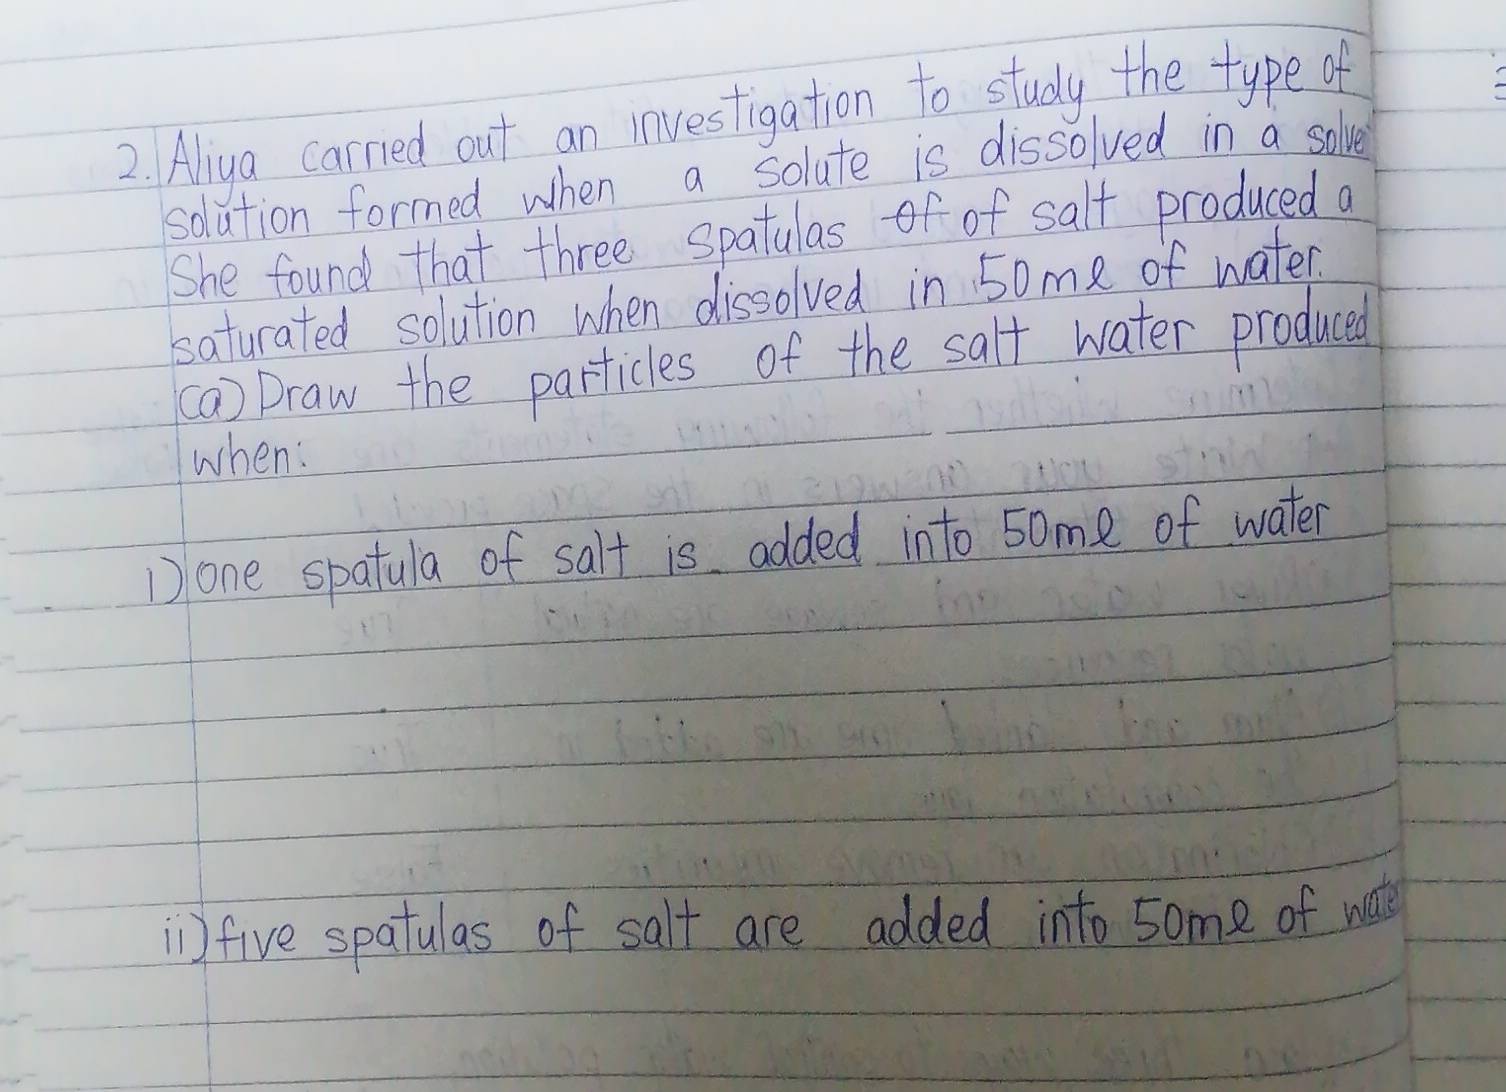 2. Aliya carried out an investigation to study the type of
solution formed when a solute is dissolved in a solve
She found that three spatulas of of salt produced a
saturated solution when dissolved in 50ml of water.
(a) Draw the particles of the salt water produced
when:
i) one spatula of salt is added into 50ml of water
ii) five spatulas of salt are added into 50ml of water